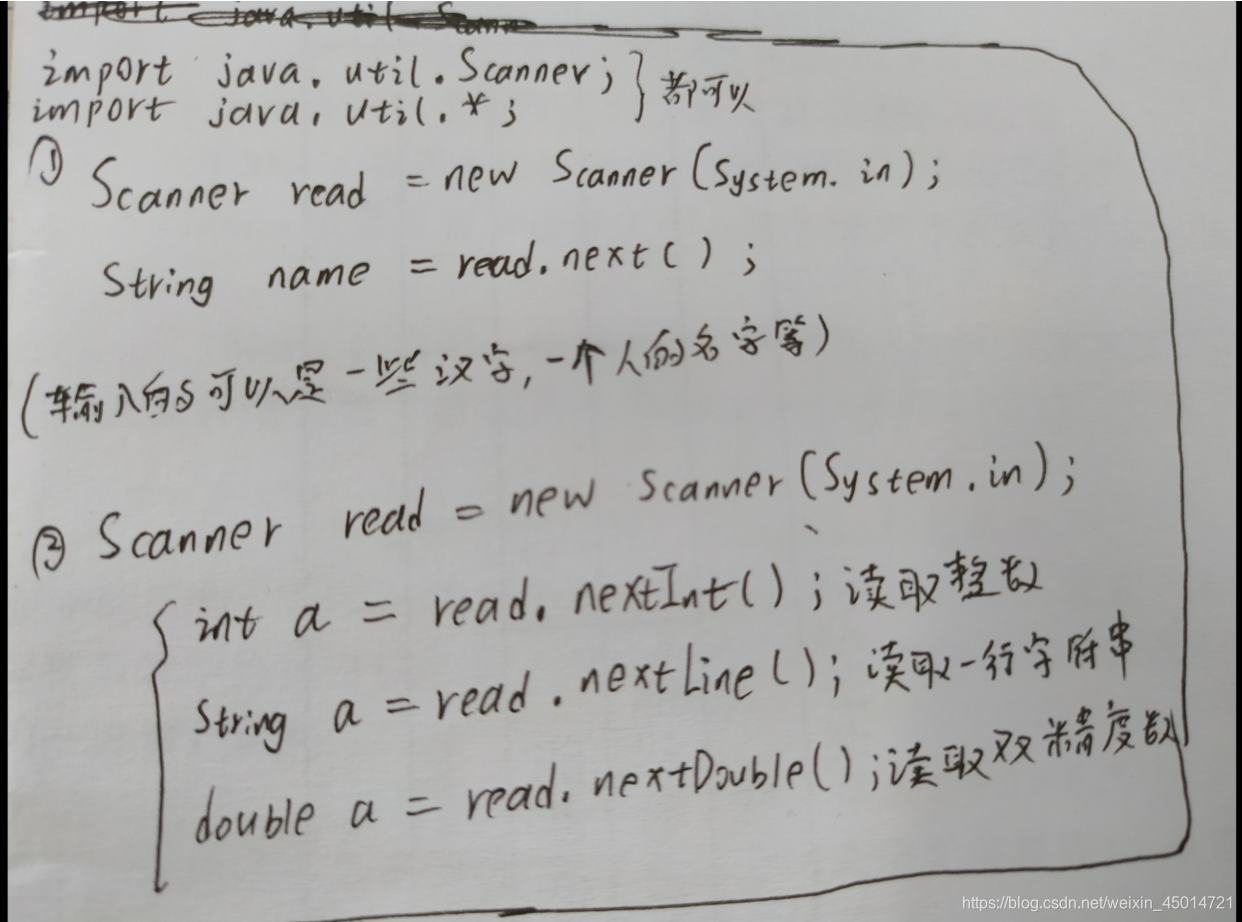 import java.util.Scanner;
import java.util.*;
} 都可以
① Scanner read = new Scanner(System.in);
String name = read.next();
(输入的可以是一些汉字,一个人的名字等)
② Scanner read = new Scanner(System.in);
{ int a = read.nextInt(); 读取整数
String a = read.nextLine(); 读取一行字符串
double a = read.nextDouble(); 读取双精度数
https://blog.csdn.net/weixin_45014721